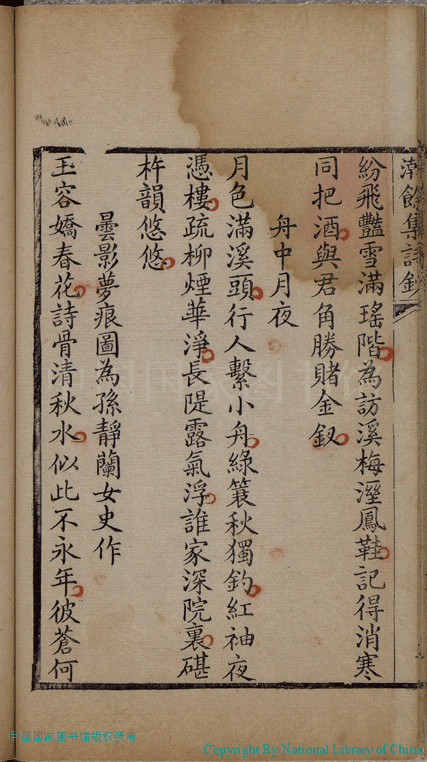 澣餘集詩鈔
紛飛豔雪滿瑤階為訪溪梅溼鳳鞋記得消寒
同把酒與君角勝賭金釵
舟中月夜
月色滿溪頭行人繫小舟綠簑秋獨釣紅袖夜
憑樓疏柳煙華淨長隄露氣浮誰家深院裏碪
杵韻悠悠
曇影夢痕圖為孫靜蘭女史作
玉容嬌春花詩骨清秋水似此不永年彼蒼何
中国国家图书馆版权所有
Copyright By National Library of China